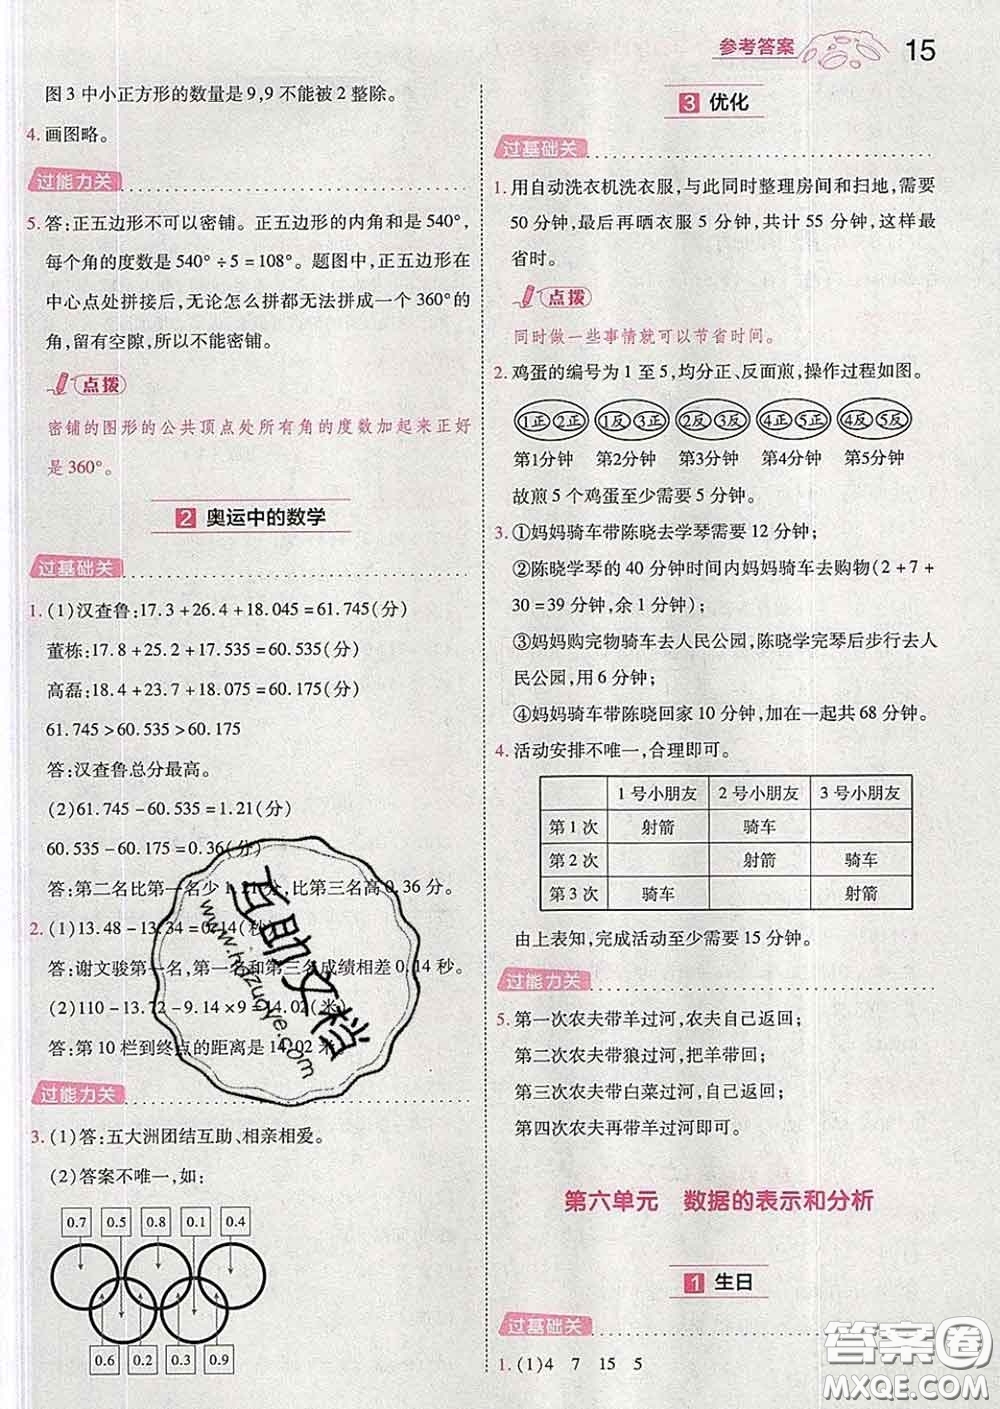 参考答案 15
图3中小正方形的数量是9,9不能被2整除。
4. 画图略。
过能力关
5. 答:正五边形不可以密铺。正五边形的内角和是540°,
每个角的度数是540°÷5=108°。题图中,正五边形在
中心点处拼接后,无论怎么拼都无法拼成一个360°的
角,留有空隙,所以不能密铺。
点拨
密铺的图形的公共顶点处所有角的度数加起来正好
是360°。
2 奥运中的数学
过基础关
1. (1)汉查鲁:17.3+26.4+18.045=61.745(分)
董栋:17.8+25.2+17.535=60.535(分)
高磊:18.4+23.7+18.075=60.175(分)
61.745>60.535>60.175
答:汉查鲁总分最高。
(2)61.745-60.535=1.21(分)
60.535-60.175=0.36(分)
答:第二名比第一名少1.21分,比第三名高0.36分。
2. (1)13.48-13.34=0.14(秒)
答:谢文骏第一名,第一名和第三名成绩相差0.14秒。
(2)110-13.72-9.14×9=14.02(米)
答:第10栏到终点的距离是14.02米。
过能力关
3. (1)答:五大洲团结互助、相亲相爱。
(2)答案不唯一,如:
0.7 0.5 0.8 0.1 0.4
0.6 0.2 0.3 0.9
3 优化
过基础关
1. 用自动洗衣机洗衣服,与此同时整理房间和扫地,需要
50分钟,最后再晒衣服5分钟,共计55分钟,这样最
省时。
点拨
同时做一些事情就可以节省时间。
2. 鸡蛋的编号为1至5,均分正、反面煎,操作过程如图。
1正 2正 1反 3正 2反 3反 4正 5正 4反 5反
第1分钟 第2分钟 第3分钟 第4分钟 第5分钟
故煎5个鸡蛋至少需要5分钟。
3. ①妈妈骑车带陈晓去学琴需要12分钟;
②陈晓学琴的40分钟时间内妈妈骑车去购物(2+7+
30=39分钟,余1分钟)
③妈妈购完物骑车去人民公园,陈晓学完琴后步行去人
民公园,用6分钟;
④妈妈骑车带陈晓回家10分钟,加在一起共68分钟。
4. 活动安排不唯一,合理即可。
1号小朋友 2号小朋友 3号小朋友
第1次 射箭 骑车
第2次 射箭 骑车
第3次 骑车 射箭
由上表知,完成活动至少需要15分钟。
过能力关
5. 第一次农夫带羊过河,农夫自己返回;
第二次农夫带狼过河,把羊带回;
第三次农夫带白菜过河,自己返回;
第四次农夫再带羊过河即可。
第六单元 数据的表示和分析
1 生日
过基础关
1. (1)4 7 15 5
互助文档
www.huzuoye.com
答案圈
MXQE.COM